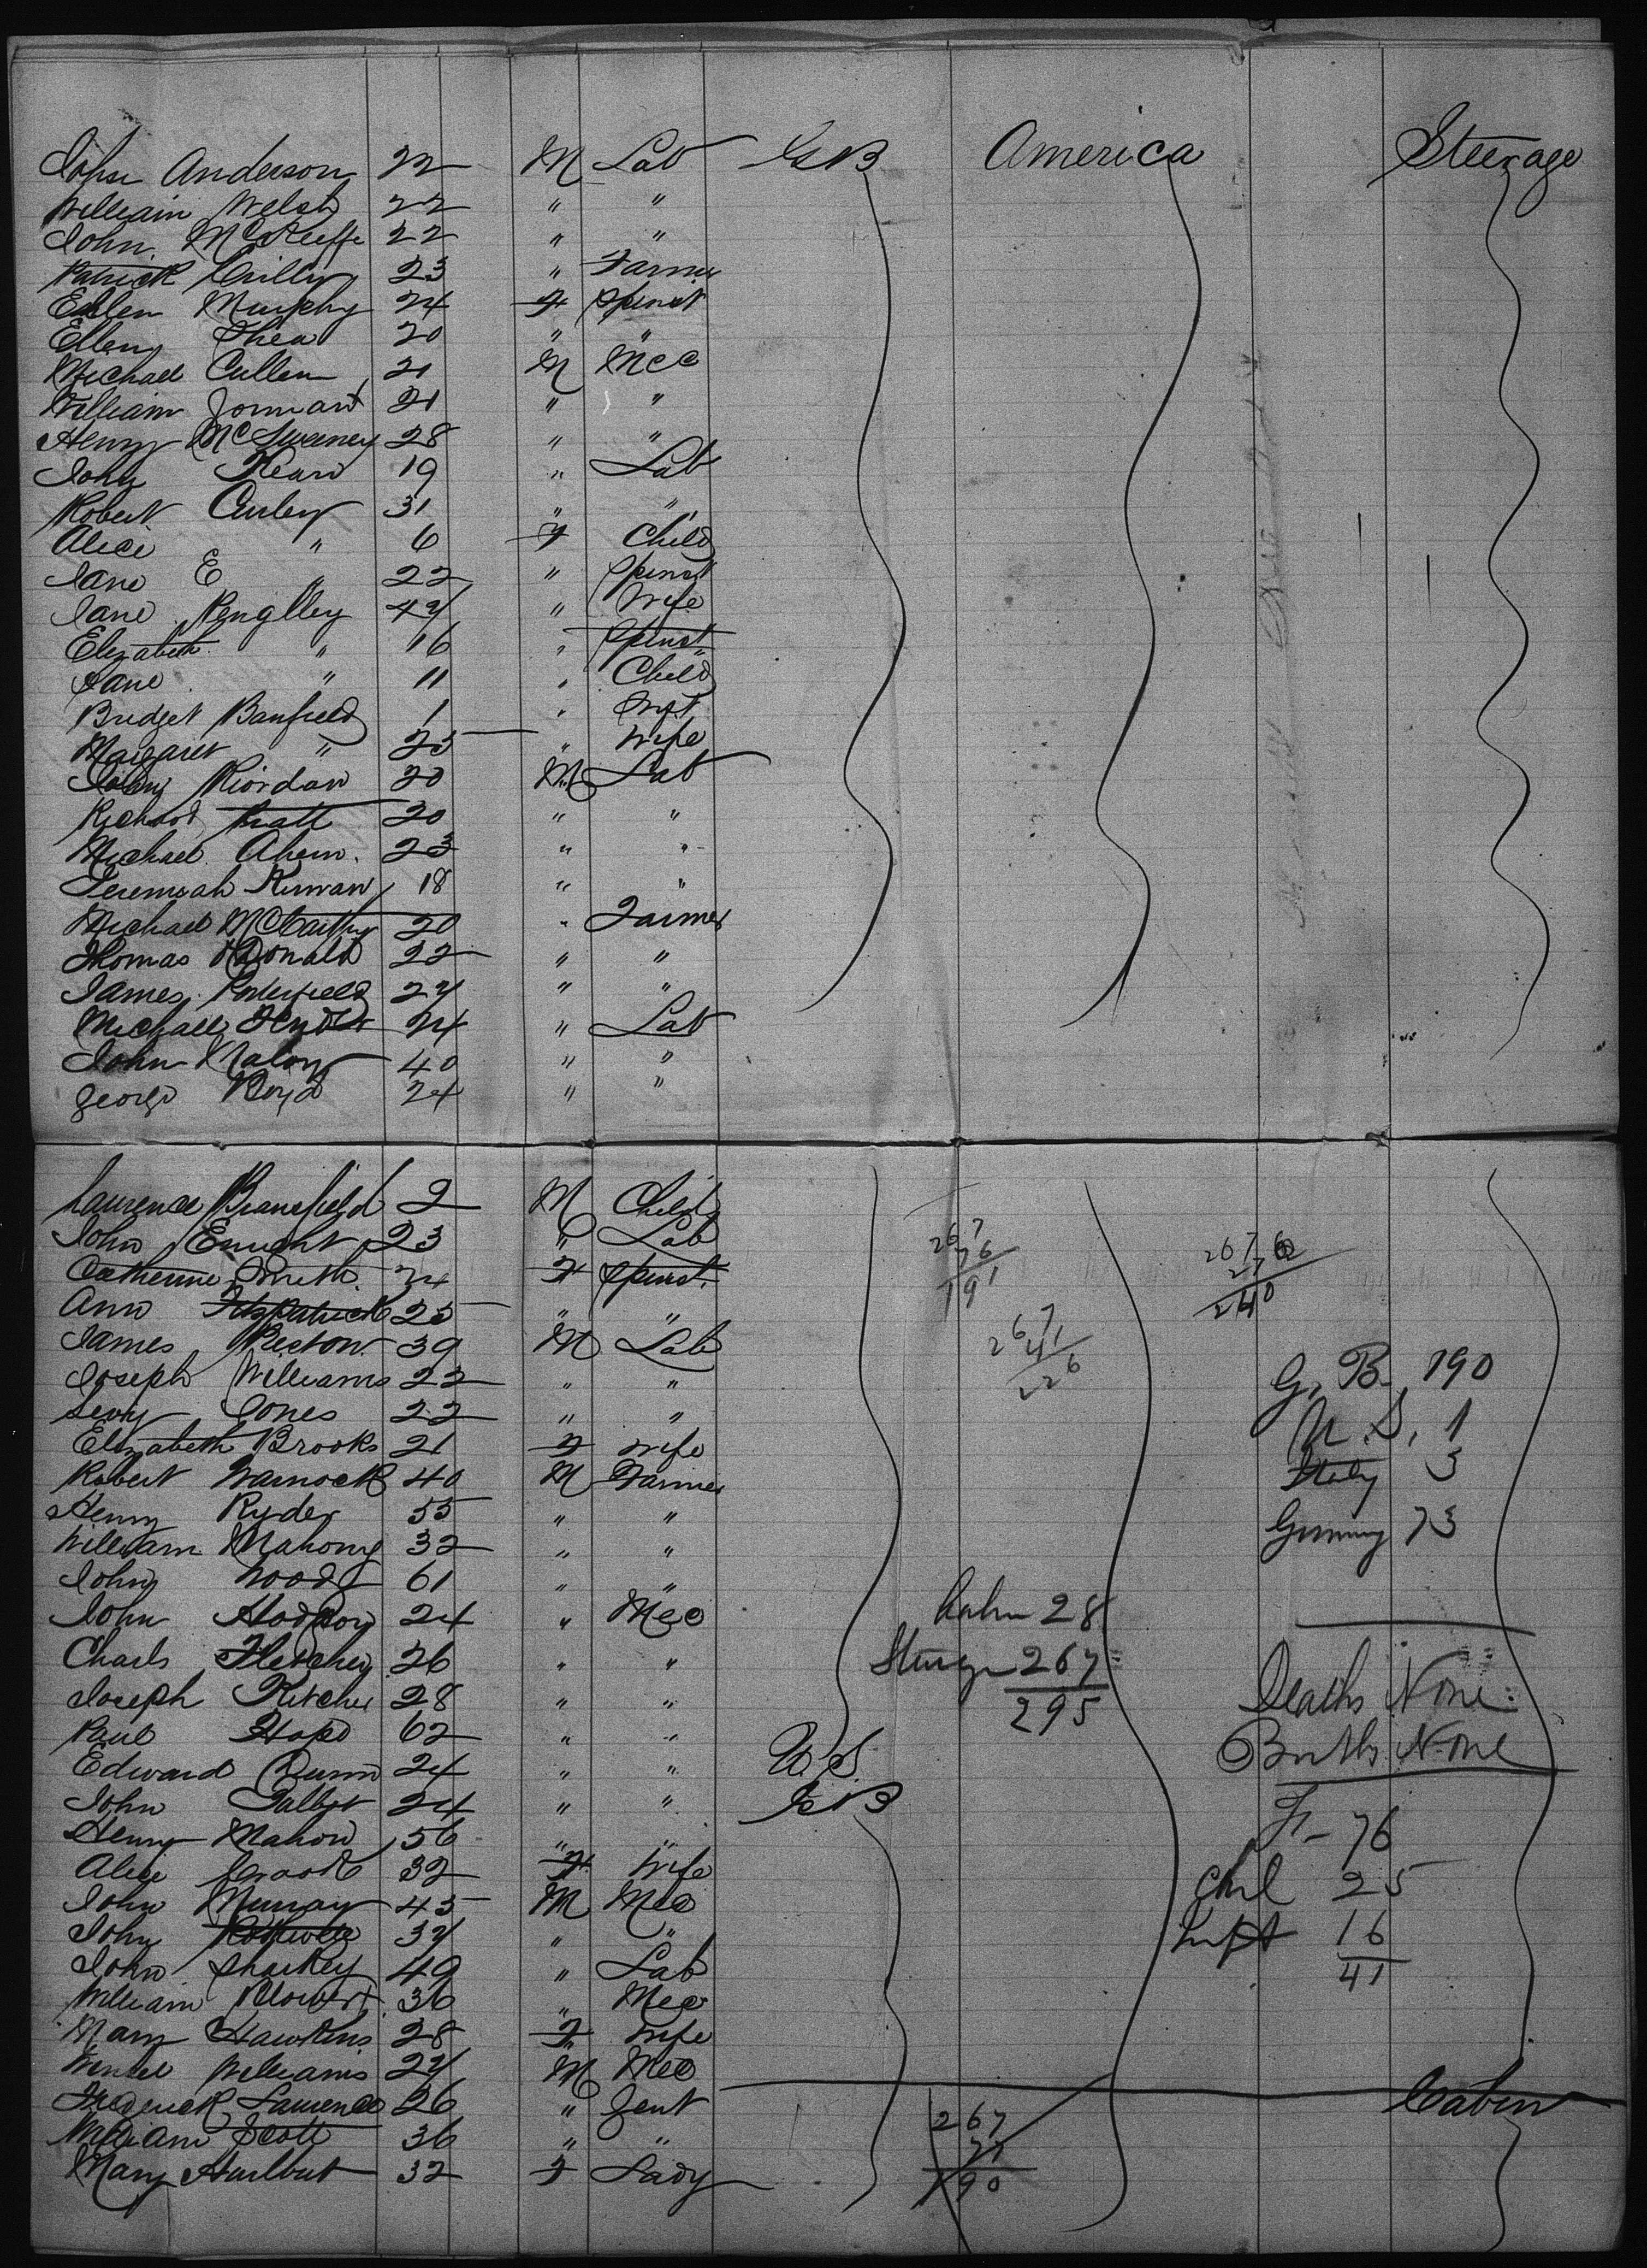 John Anderson 22 M Lab GB America Steerage
William Welsh 22 " "
John McKeeffe 22 " "
Patrick Crilly 23 " Farmer
Ellen Murphy 24 F Spinst
Ellen Shea 20 " "
Michael Cullen 21 M Mec
William 21 " "
Henry McSweeney 28 " "
John Kean 19 " Lab
Robert Curley 31 " "
Alice " 6 F Child
Jane E " 22 " Spinst
Jane Penglley 44 " Wife
Elizabeth " 16 " Spinst
Jane " 11 " Child
Bridget Banfield 1 " Inft
Margaret " 25 " Wife
John Riordan 20 M Lab
Richard Pratt 20 " "
Michael Ahern 23 " "
Jeremiah Kirwan 18 " "
Michael McCarthy 20 " Farmer
Thomas McDonald 22 " "
James Porterfield 24 " "
Michael 24 " Lab
John Malony 40 " "
George Boyd 24 " "
Laurence Bransfield 2 M Child
John Enright 23 " Lab
Catherine Smith 24 F Spinst
Ann Fitzpatrick 25 " "
James Picton 39 M Lab
Joseph Williams 22 " "
Levy Jones 22 " "
Elizabeth Brooks 21 F Wife
Robert Warnock 40 M Farmer
Henry Ryder 55 " "
William Mahony 32 " "
John Wood 61 " "
John Hodson 24 " Mec
Charls Fletcher 26 " "
Joseph Kitcher 28 " "
Paul 62 " "
Edward Dunn 24 " " US
John Talbot 24 " " GB
Henry Mahon 56 " "
Alice Crook 32 F Wife
John Murray 45 M Mec
John Rothwell 34 " "
John Sharkey 49 " Lab
William 36 " Mec
Mary Hawkins 28 F Wife
Williams 24 M Mec
Frederick Laurence 26 " Gent Cabin
William Scott 36 " "
Mary Hurlbut 32 F Lady
267
76
191
267
41
226
267
240
G. B. 190
U. S. 1
Italy 3
Germany 73
Cabin 28
Steerage 267
295
Deaths None
Births None
F - 76
Chil 25
Inft 16
41
267
77
190